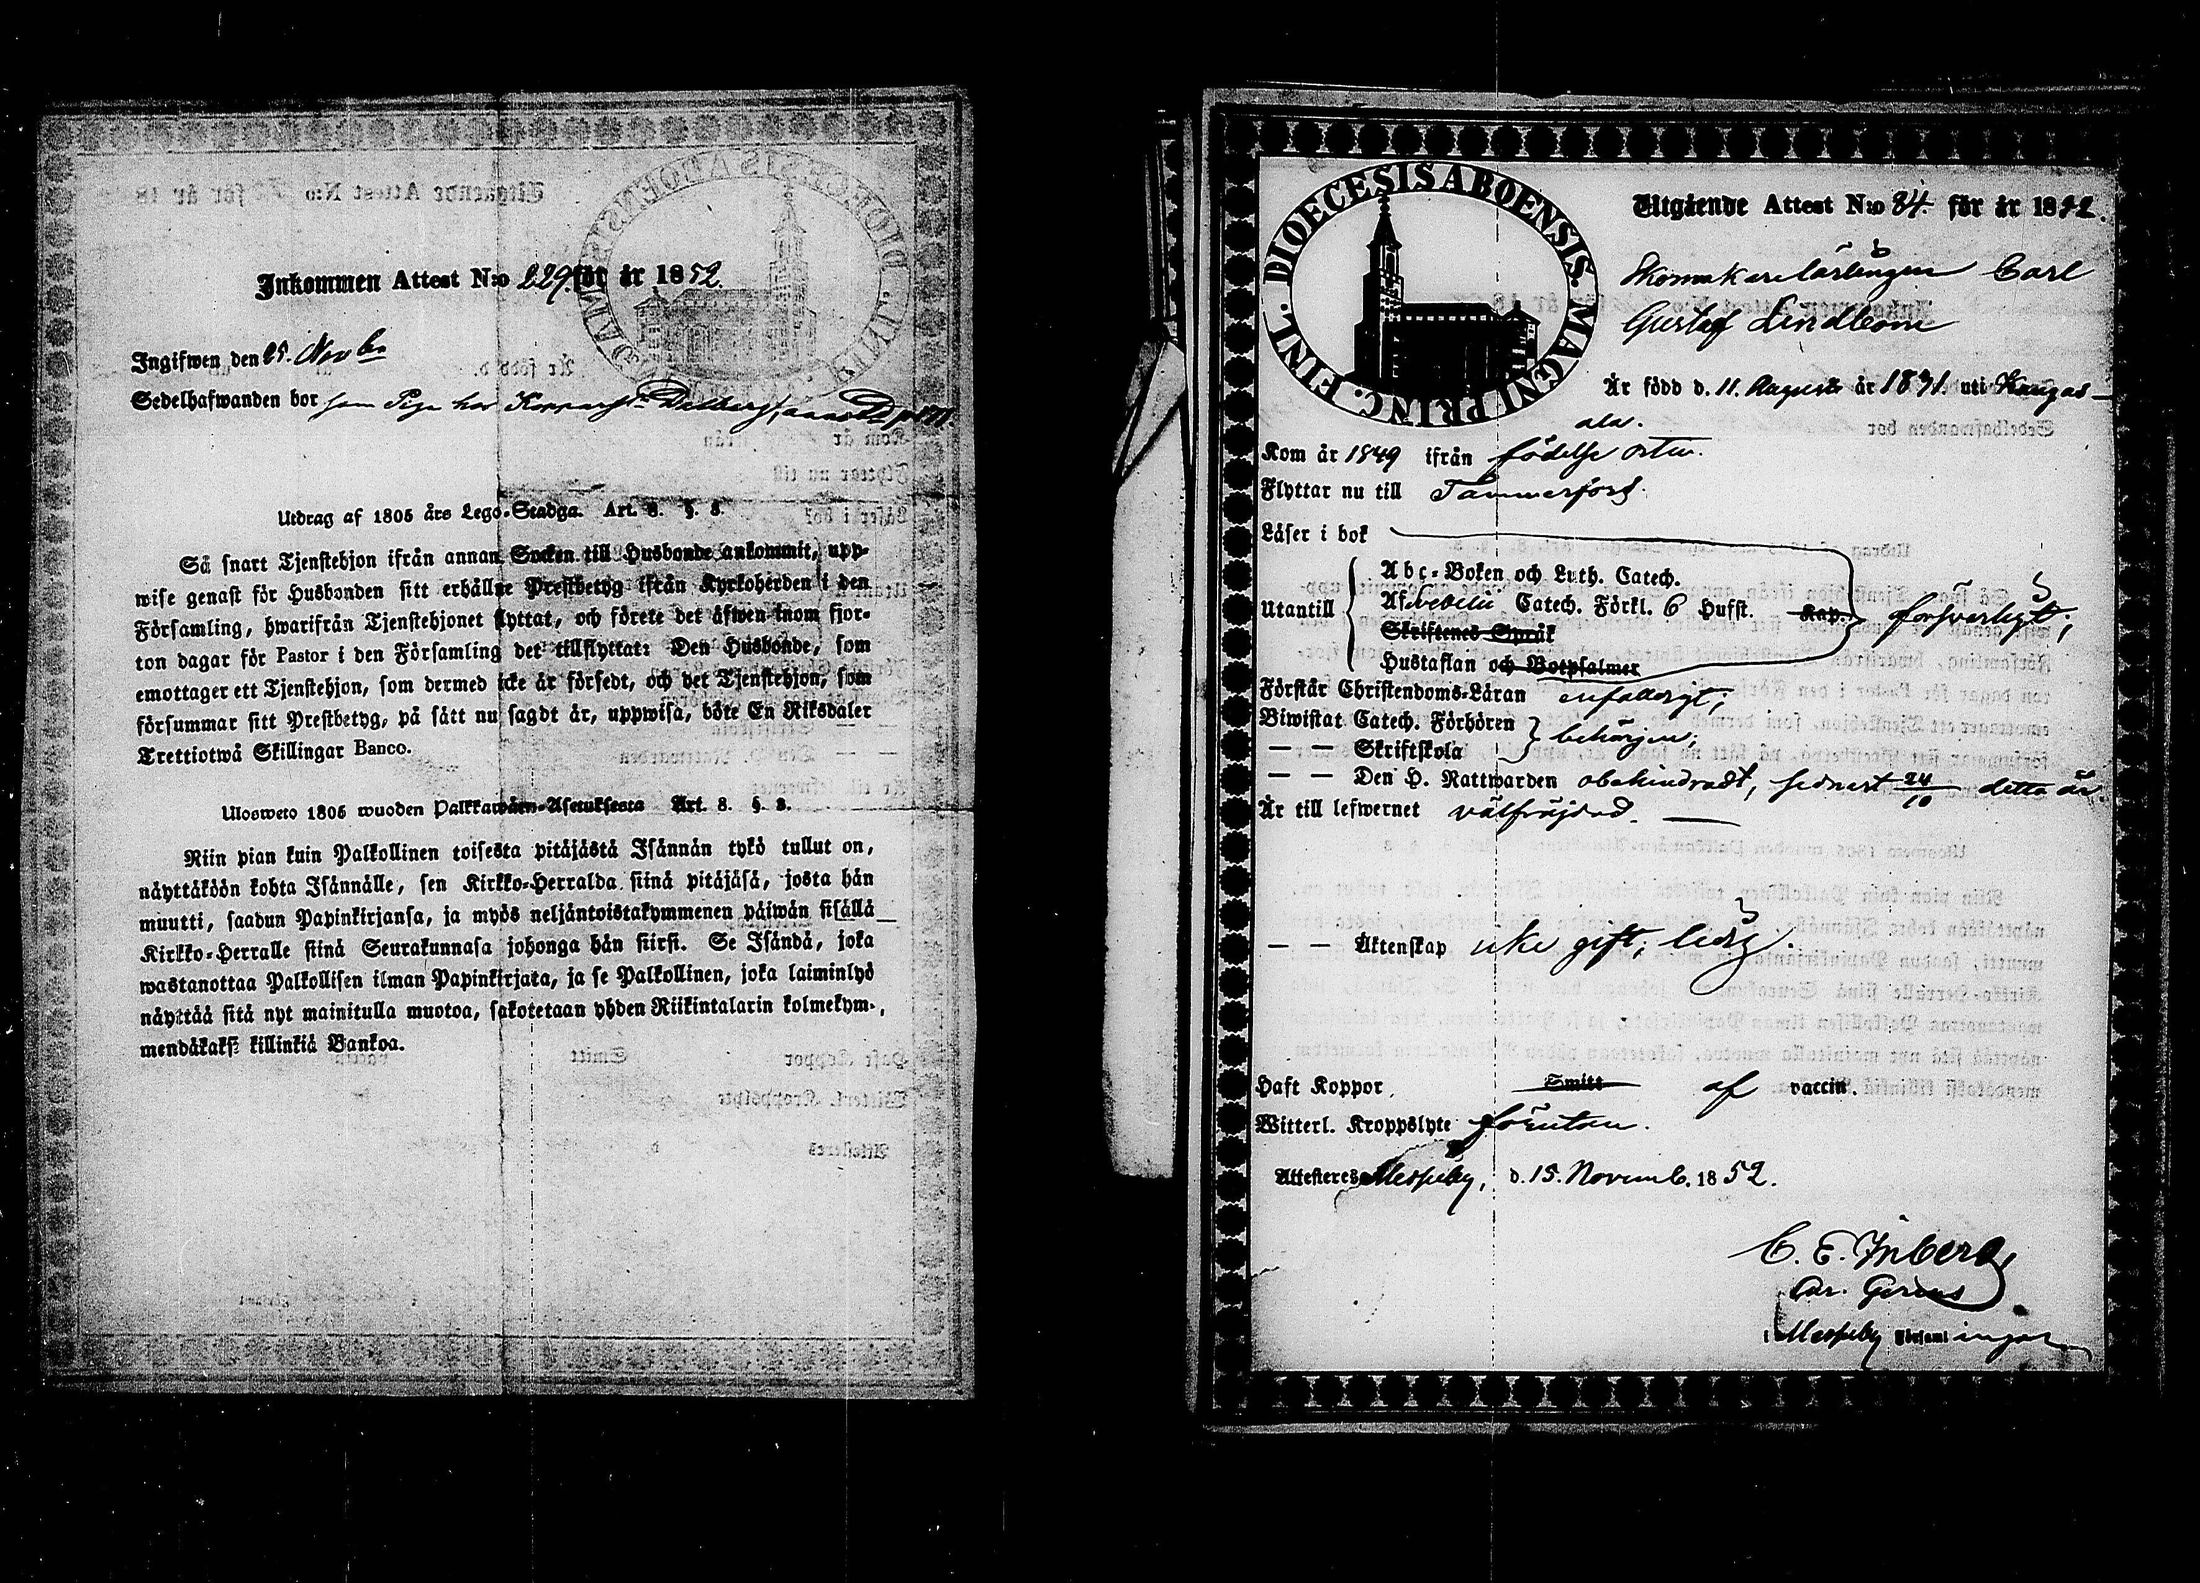 Inkommen Attest N:o 229. för år 1852.
Ingifwen den 25. Novbr
Sedelhafwanden bor som Piga hos
Utdrag af 1805 års Lego-Stadga. Art. 8. §. 3.
Så snart Tjenstehjon ifrån annan Socken till Husbonde ankommit, upp-
wise genast för Husbonden sitt erhållne Prestbetyg ifrån Kyrkoherden i den
Församling, hwarifrån Tjenstehjonet flyttat, och förete det äfwen inom fjor-
ton dagar för Pastor i den Församling det tillflyttat: Den Husbonde, som
emottager ett Tjenstehjon, som dermed icke är försedt, och det Tjenstehjon, som
försummar sitt Prestbetyg, på sätt nu sagdt är, uppwisa, böte En Riksdaler
Trettiotwå Skillingar Banco.
Ulosweto 1805 wuoden Palkkawäen-Asetuksesta Art. 8. §. 3.
Niin pian kuin Palkollinen toisesta pitäjästä Isännän tykö tullut on,
näyttäköön kohta Isännälle, sen Kirkko-Herralda siinä pitäjäsä, josta hän
muutti, saadun Papinkirjansa, ja myös neljäntoistakymmenen päiwän sisällä
Kirkko-Herralle siinä Seurakunnasa johonga hän siirsi. Se Isändä, joka
wastanottaa Palkollisen ilman Papinkirjata, ja se Palkollinen, joka laiminlyö
näyttää sitä nyt mainitulla muotoa, sakotetaan yhden Riikintalarin kolmekym-
mendäkaksi killinkiä Bankoa.
DIOECESIS ABOENSIS. MAGNI PRINC. FINL.
Utgående Attest N:o 84. för år 1852.
Skomakarelärlingen Carl
Gustaf Lindbom
Är född d. 11. Augusti år 1831. uti Kangas-
ala.
Kom år 1849 ifrån födelse orten.
Flyttar nu till Tammerfors.
Läser i bok
Utantill
Abc-Boken och Luth. Catech.
Af Svebelii Catech. Förkl. 6 Hufst. Kap. försvarligt;
Skriftenes Språk
Hustaflan och Botpsalmer
Förstår Christendoms-Läran enfaldigt;
Biwistat Catech. Förhören
— — Skriftskola behörigen;
— — Den H. Nattwarden obehindradt, sednast 24/10 detta år.
Är till lefwernet välfrejdad.
— — Äktenskap icke gift; ledig.
Haft Koppor Smitt af vaccin.
Witterl. Kroppslyte förutan.
Attesteres Messuby, d. 15. Novemb. 1852.
C. E. Inberg
i Messuby Församl ingar